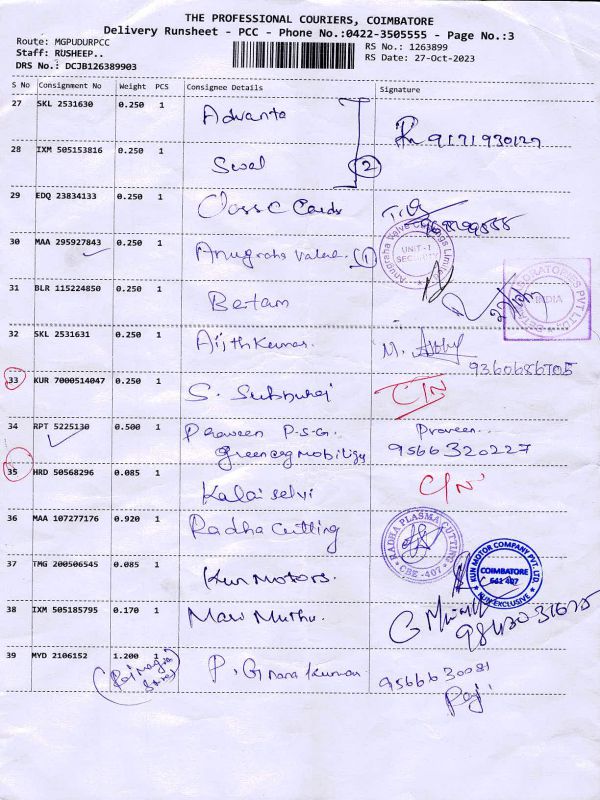 THE PROFESSIONAL COURIERS, COIMBATORE
Delivery Runsheet - PCC - Phone No.:0422-3505555 - Page No.:3
Route: MGPUDURPCC
Staff: RUSHEEP..
DRS No.: DCJB126389903
RS No.: 1263899
RS Date: 27-Oct-2023
S No Consignment No Weight PCS Consignee Details Signature
27 SKL 2531630 0.250 1 Advanta
28 IXM 505153816 0.250 1 Swal 2
29 EDQ 23834133 0.250 1 Class C Cards
30 MAA 295927843 0.250 1 Anugraha Valve. (1)
UNIT-1
31 BLR 115224850 0.250 1 Betam
INDIA
32 SKL 2531631 0.250 1 Ajith Kumar. M.
33 KUR 7000514047 0.250 1 S. Subburaj C/N
34 RPT 5225130 0.500 1 Praveen P-S-G. Praveen..
mobility 9566320227
35 HRD 50568296 0.085 1 Kalai selvi C/N
36 MAA 107277176 0.920 1 Radha Cutting
RADHA PLASMA CUTTING CBE -407
37 TMG 200506545 0.085 1 Kun Motors.
KUN MOTOR COMPANY PVT. LTD. COIMBATORE 641 407 KUN EXCLUSIVE
38 IXM 505185795 0.170 1 Mari Muthu.
39 MYD 2106152 1.200 1 P. Gnana Kumar 9566630081